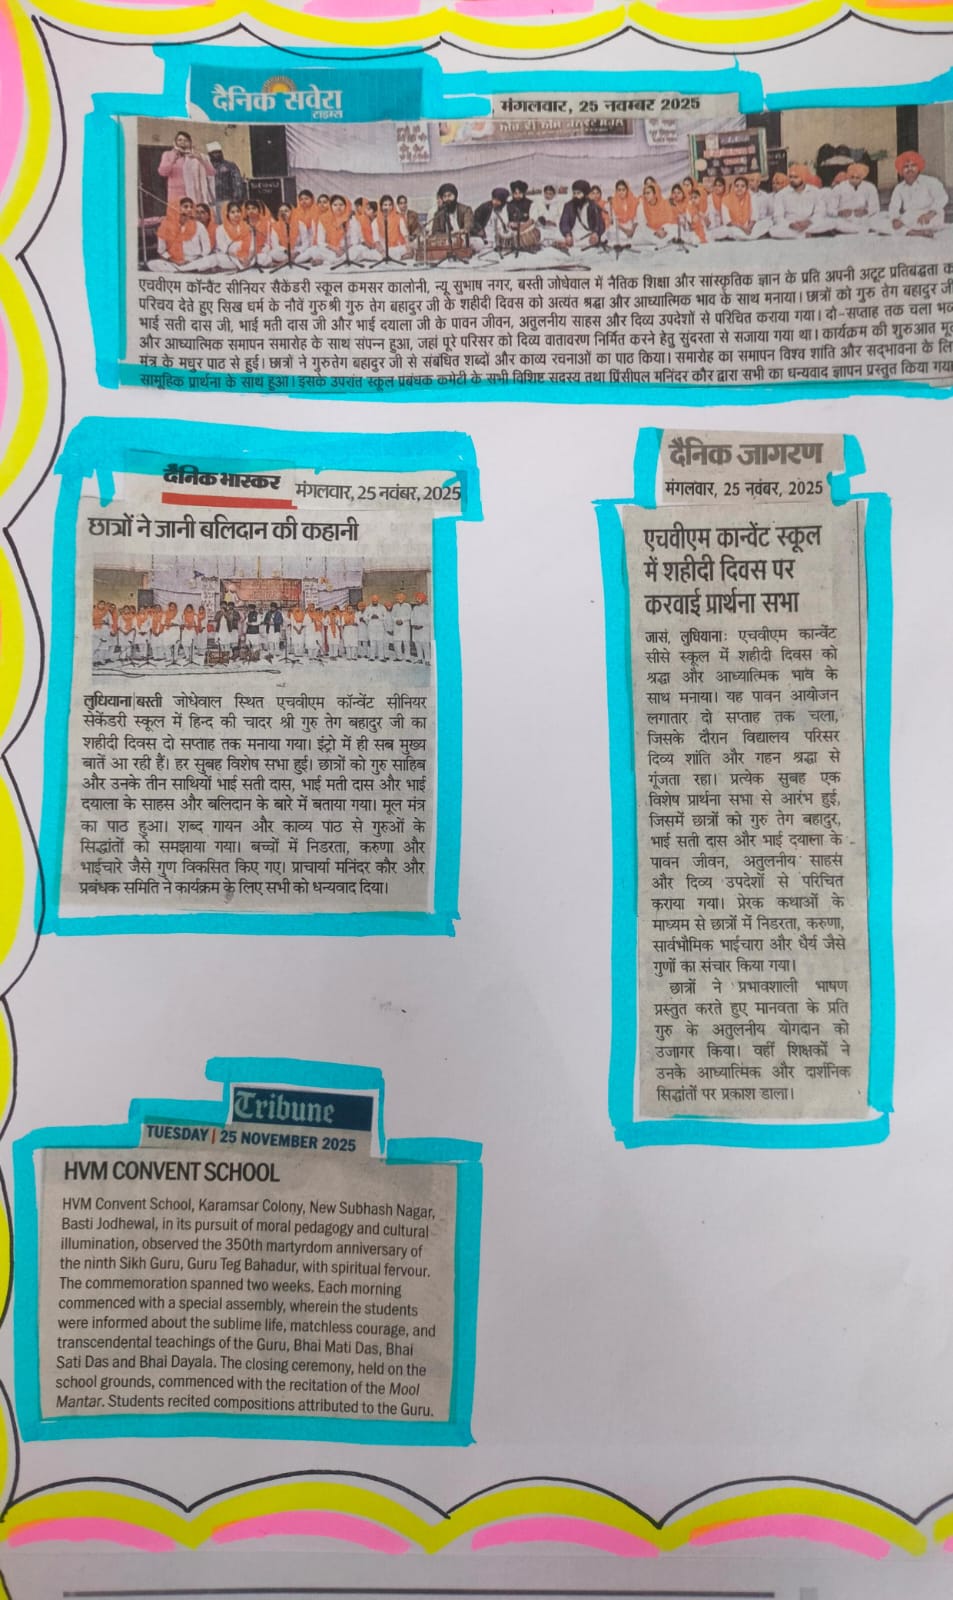 दैनिक सवेरा
टाइम्स
मंगलवार, 25 नवम्बर 2025
एचवीएम कॉन्वैंट सीनियर सैकेंडरी स्कूल कमसर कालोनी, न्यू सुभाष नगर, बस्ती जोधेवाल में नैतिक शिक्षा और सांस्कृतिक ज्ञान के प्रति अपनी अटूट प्रतिबद्धता क
परिचय देते हुए सिख धर्म के नौवें गुरु श्री गुरु तेग बहादुर जी के शहीदी दिवस को अत्यंत श्रद्धा और आध्यात्मिक भाव के साथ मनाया। छात्रों को गुरु तेग बहादुर जी
भाई सती दास जी, भाई मती दास जी और भाई दयाला जी के पावन जीवन, अतुलनीय साहस और दिव्य उपदेशों से परिचित कराया गया। दो-सप्ताह तक चला भव
और आध्यात्मिक समापन समारोह के साथ संपन्न हुआ, जहां पूरे परिसर को दिव्य वातावरण निर्मित करने हेतु सुंदरता से सजाया गया था। कार्यक्रम की शुरुआत मू
मंत्र के मधुर पाठ से हुई। छात्रों ने गुरु तेग बहादुर जी से संबंधित शब्दों और काव्य रचनाओं का पाठ किया। समारोह का समापन विश्व शांति और सद्भावना के लि
सामूहिक प्रार्थना के साथ हुआ। इसके उपरांत स्कूल प्रबंधक कमेटी के सभी विशिष्ट सदस्य तथा प्रिंसीपल मनिंदर कौर द्वारा सभी का धन्यवाद ज्ञापन प्रस्तुत किया गया
दैनिक भास्कर
मंगलवार, 25 नवंबर, 2025
छात्रों ने जानी बलिदान की कहानी
लुधियाना|बस्ती जोधेवाल स्थित एचवीएम कॉन्वेंट सीनियर
सेकेंडरी स्कूल में हिन्द की चादर श्री गुरु तेग बहादुर जी का
शहीदी दिवस दो सप्ताह तक मनाया गया। इंट्रो में ही सब मुख्य
बातें आ रही हैं। हर सुबह विशेष सभा हुई। छात्रों को गुरु साहिब
और उनके तीन साथियों भाई सती दास, भाई मती दास और भाई
दयाला के साहस और बलिदान के बारे में बताया गया। मूल मंत्र
का पाठ हुआ। शब्द गायन और काव्य पाठ से गुरुओं के
सिद्धांतों को समझाया गया। बच्चों में निडरता, करुणा और
भाईचारे जैसे गुण विकसित किए गए। प्राचार्या मनिंदर कौर और
प्रबंधक समिति ने कार्यक्रम के लिए सभी को धन्यवाद दिया।
दैनिक जागरण
मंगलवार, 25 नवंबर, 2025
एचवीएम कान्वेंट स्कूल
में शहीदी दिवस पर
करवाई प्रार्थना सभा
जासं, लुधियाना: एचवीएम कान्वेंट
सीसे स्कूल में शहीदी दिवस को
श्रद्धा और आध्यात्मिक भाव के
साथ मनाया। यह पावन आयोजन
लगातार दो सप्ताह तक चला,
जिसके दौरान विद्यालय परिसर
दिव्य शांति और गहन श्रद्धा से
गूंजता रहा। प्रत्येक सुबह एक
विशेष प्रार्थना सभा से आरंभ हुई,
जिसमें छात्रों को गुरु तेग बहादुर,
भाई सती दास और भाई दयाला के
पावन जीवन, अतुलनीय साहस
और दिव्य उपदेशों से परिचित
कराया गया। प्रेरक कथाओं के
माध्यम से छात्रों में निडरता, करुणा,
सार्वभौमिक भाईचारा और धैर्य जैसे
गुणों का संचार किया गया।
छात्रों ने प्रभावशाली भाषण
प्रस्तुत करते हुए मानवता के प्रति
गुरु के अतुलनीय योगदान को
उजागर किया। वहीं शिक्षकों ने
उनके आध्यात्मिक और दार्शनिक
सिद्धांतों पर प्रकाश डाला।
Tribune
TUESDAY | 25 NOVEMBER 2025
HVM CONVENT SCHOOL
HVM Convent School, Karamsar Colony, New Subhash Nagar,
Basti Jodhewal, in its pursuit of moral pedagogy and cultural
illumination, observed the 350th martyrdom anniversary of
the ninth Sikh Guru, Guru Teg Bahadur, with spiritual fervour.
The commemoration spanned two weeks. Each morning
commenced with a special assembly, wherein the students
were informed about the sublime life, matchless courage, and
transcendental teachings of the Guru, Bhai Mati Das, Bhai
Sati Das and Bhai Dayala. The closing ceremony, held on the
school grounds, commenced with the recitation of the Mool
Mantar. Students recited compositions attributed to the Guru.